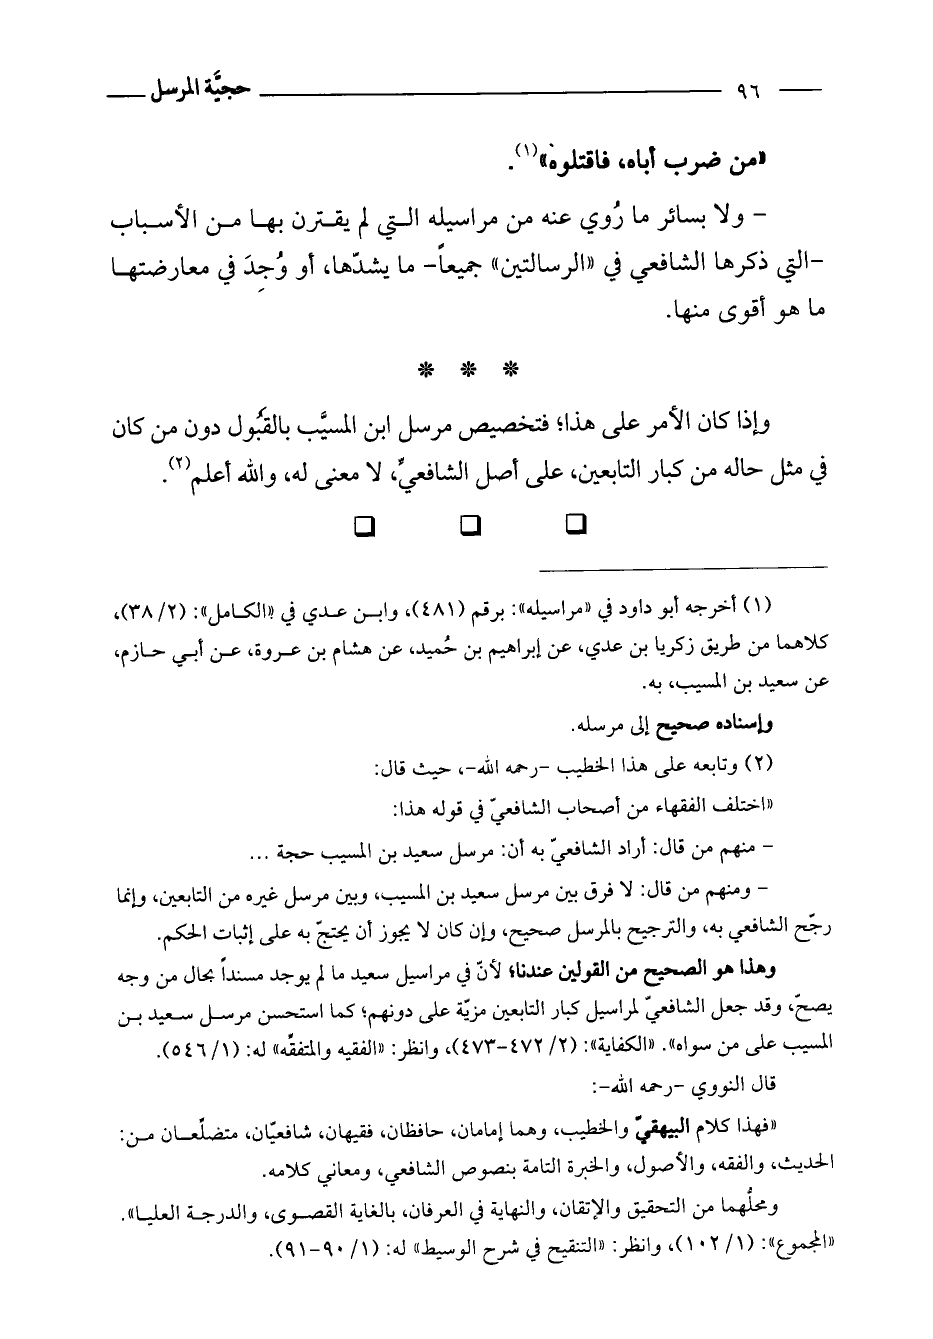 ٩٦ حجيَّة المرسل
«من ضرب أباه، فاقتلوه»(١).
- ولا بسائر ما رُوي عنه من مراسيله التي لم يقترن بها من الأسباب
-التي ذكرها الشافعي في «الرسالتين» جميعاً- ما يشدّها، أو وُجِدَ في معارضتها
ما هو أقوى منها.
* * *
وإذا كان الأمر على هذا؛ فتخصيص مرسل ابن المسيَّب بالقَبُول دون من كان
في مثل حاله من كبار التابعين، على أصل الشافعيِّ، لا معنى له، والله أعلم(٢).
(١) أخرجه أبو داود في «مراسيله»: برقم (٤٨١)، وابن عدي في «الكامل»: (٢/ ٣٨)،
كلاهما من طريق زكريا بن عدي، عن إبراهيم بن حُميد، عن هشام بن عروة، عن أبي حازم،
عن سعيد بن المسيب، به.
وإسناده صحيح إلى مرسله.
(٢) وتابعه على هذا الخطيب -رحمه الله-، حيث قال:
«اختلف الفقهاء من أصحاب الشافعيّ في قوله هذا:
- منهم من قال: أراد الشافعيّ به أن: مرسل سعيد بن المسيب حجة ...
- ومنهم من قال: لا فرق بين مرسل سعيد بن المسيب، وبين مرسل غيره من التابعين، وإنما
رجّح الشافعي به، والترجيح بالمرسل صحيح، وإن كان لا يجوز أن يحتجّ به على إثبات الحكم.
وهذا هو الصحيح من القولين عندنا؛ لأنّ في مراسيل سعيد ما لم يوجد مسنداً بحال من وجه
يصحّ، وقد جعل الشافعيّ لمراسيل كبار التابعين مزيّة على دونهم؛ كما استحسن مرسل سعيد بن
المسيب على من سواه». «الكفاية»: (٢/ ٤٧٢-٤٧٣)، وانظر: «الفقيه والمتفقِّه» له: (١/ ٥٤٦).
قال النووي -رحمه الله-:
«فهذا كلام البيهقيّ والخطيب، وهما إمامان، حافظان، فقيهان، شافعيّان، متضلّعان من:
الحديث، والفقه، والأصول، والخبرة التامة بنصوص الشافعي، ومعاني كلامه.
ومحلُّهما من التحقيق والإتقان، والنهاية في العرفان، بالغاية القصوى، والدرجة العليا».
«المجموع»: (١/ ١٠٢)، وانظر: «التنقيح في شرح الوسيط» له: (١/ ٩٠-٩١).